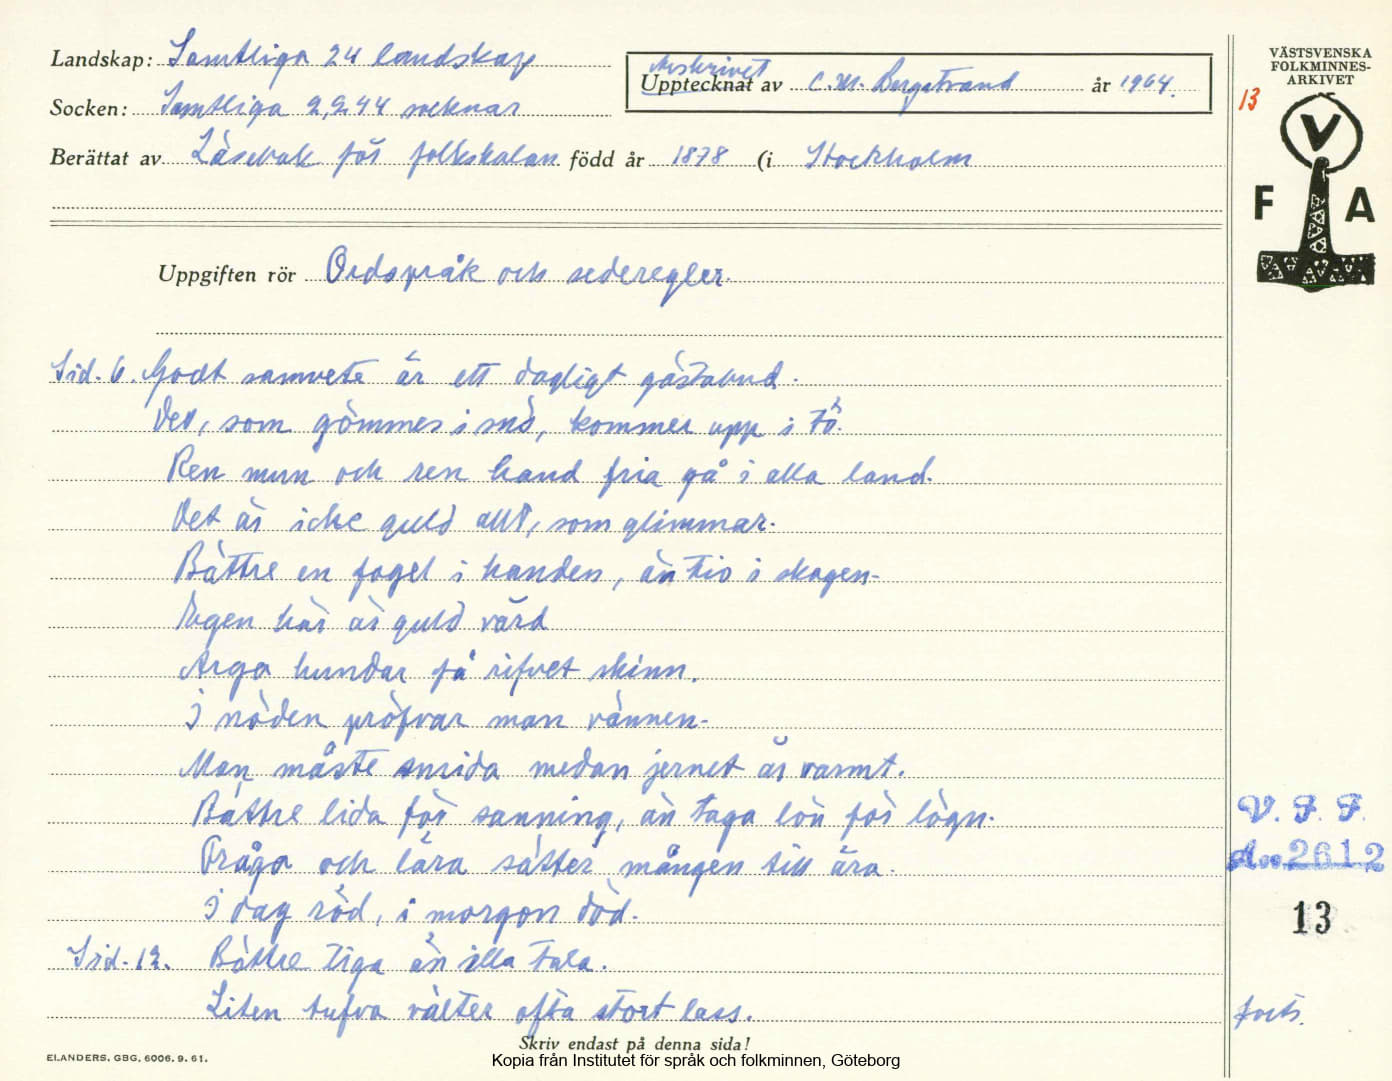 Landskap: Samtliga 24 landskap
Socken: Samtliga 2,244 socknar
Avskrivet
Upptecknat av C. M. Bergstrand år 1964.
Berättat av Läsebok för folkskolan född år 1878 (i Stockholm
VÄSTSVENSKA
FOLKMINNES-
ARKIVET
13
V
F A
Uppgiften rör Ordspråk och sederegler.
Sid. 6. Godt samvete är ett dagligt gästabud.
Det, som gömmes i snö, kommer upp i tö.
Ren mun och ren hand fria gå i alla land.
Det är icke guld allt, som glimmar.
Bättre en fogel i handen, än tio i skogen.
Egen här är guld värd
Arga hundar få rifvet skinn.
I nöden pröfvar man vännen.
Man måste smida medan jernet är varmt.
Bättre lida för sanning, än taga lön för lögn.
Fråga och lära sätter mången till ära.
I dag röd, i morgon död.
Sid. 12. Bättre tiga än illa tala.
Liten tufva välter ofta stort lass.
V. F. F.
2612
13
forts.
Skriv endast på denna sida!
ELANDERS, GBG, 6006. 9. 61.
Kopia från Institutet för språk och folkminnen, Göteborg